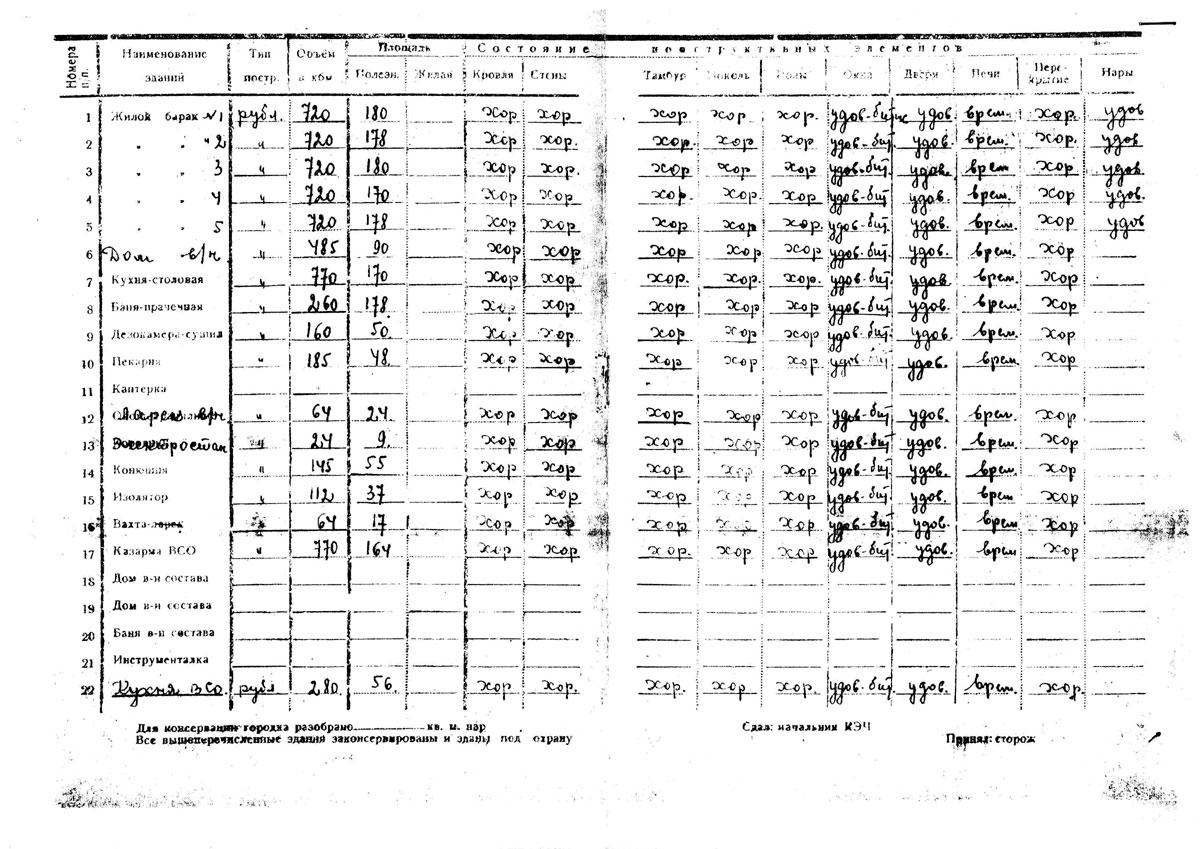 Номера п.п. Наименование зданий Тип постр. Объём в кбм Площадь Полезн. Жилая Состояние конструктивных элементов Кровля Стены Тамбур Цоколь Полы Окна Двери Печи Пере-крытие Нары
1 Жилой барак №1 рубл. 720 180 хор хор хор хор. хор. удов-бит удов. врем. хор. удов
2 " " " 2 " 720 178 хор хор. хор. хор хор удов-бит. удов. врем. хор. удов
3 " " 3 " 720 180 хор хор. хор хор хор удов-бит. удов. врем хор удов.
4 " " 4 " 720 170 хор хор хор. хор. хор удов-бит удов. врем. хор удов.
5 " " 5 " 720 178 хор хор хор хор хор. удов-бит. удов. врем. хор удов
6 Дом в/н " 485 90 хор хор хор хор хор удов-бит. удов. врем. хор
7 Кухня-столовая " 770 170 хор хор хор. хор. хор удов-бит. удов. врем. хор
8 Баня-прачечная " 260 178 хор хор хор хор хор. удов-бит удов. врем. хор
9 Дезокамера-сушил " 160 50. хор хор. хор хор хор удов-бит удов. врем. хор
10 Пекарня " 185 48. хор хор хор хор хор удов-бит удов. врем. хор
11 Каптерка
12 Ларек в/н " 64 24. хор хор хор хор хор удов-бит удов. врем. хор
13 Электростан " 24 9. хор хор хор хор хор удов-бит удов. врем. хор
14 Конюшня " 145 55 хор хор хор хор хор удов-бит удов. врем. хор
15 Изолятор " 112 37 хор хор хор хор хор удов-бит удов. врем хор
16 Вахта-ларек " 64 17 хор хор хор хор хор удов-бит удов. врем хор
17 Казарма ВСО " 770 164 хор хор хор. хор хор удов-бит удов. врем хор
18 Дом в-н состава
19 Дом в-н состава
20 Баня в-н состава
21 Инструменталка
22 Кухня ВСО. рубл 280. 56. хор хор. хор. хор хор. удов-бит удов. врем. хор.
Для консервации городка разобрано кв. м. нар Сдал: начальник КЭЧ
Все вышеперечисленные здания законсервированы и зданы под охрану Принял: сторож